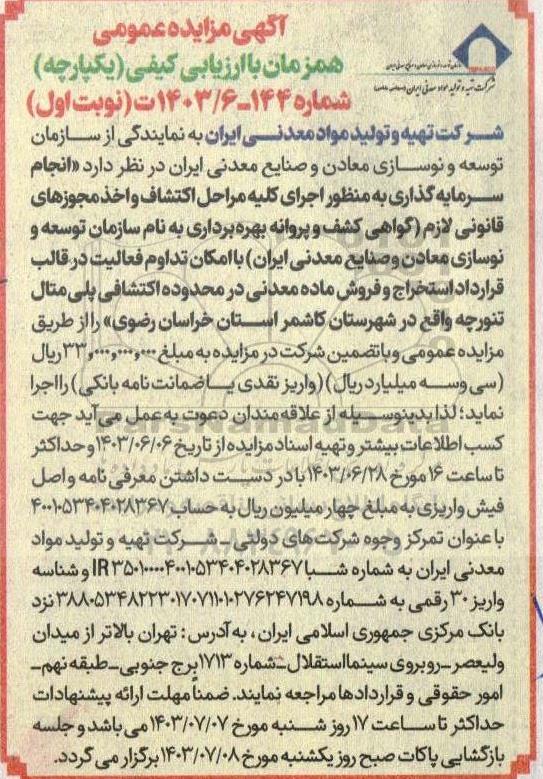 آگهی مزایده عمومی
همزمان با ارزیابی کیفی (یکپارچه)
شماره ۱۴۴-۱۴۰۳/۶ت (نوبت اول)
شرکت تهیه و تولید مواد معدنی ایران
شرکت تهیه و تولید مواد معدنی ایران به نمایندگی از سازمان
توسعه و نوسازی معادن و صنایع معدنی ایران در نظر دارد «انجام
سرمایه گذاری به منظور اجرای کلیه مراحل اکتشاف و اخذ مجوزهای
قانونی لازم (گواهی کشف و پروانه بهره‌برداری به نام سازمان توسعه و
نوسازی معادن و صنایع معدنی ایران) با امکان تداوم فعالیت در قالب
قرارداد استخراج و فروش ماده معدنی در محدوده اکتشافی پلی متال
تنورچه واقع در شهرستان کاشمر استان خراسان رضوی» را از طریق
مزایده عمومی و با تضمین شرکت در مزایده به مبلغ ۳۳,۰۰۰,۰۰۰,۰۰۰ ریال
(سی و سه میلیارد ریال) (واریز نقدی یا ضمانت نامه بانکی) را اجرا
نماید؛ لذا بدینوسیله از علاقه‌مندان دعوت به عمل می آید جهت
کسب اطلاعات بیشتر و تهیه اسناد مزایده از تاریخ ۱۴۰۳/۰۶/۰۶ و حداکثر
تا ساعت ۱۶ مورخ ۱۴۰۳/۰۶/۲۸ با در دست داشتن معرفی نامه و اصل
فیش واریزی به مبلغ چهار میلیون ریال به حساب ۴۰۰۱۰۵۳۴۰۴۰۲۸۳۶۷
با عنوان تمرکز وجوه شرکت های دولتی - شرکت تهیه و تولید مواد
معدنی ایران به شماره شبا IR۳۵۰۱۰۰۰۰۴۰۰۱۰۵۳۴۰۴۰۲۸۳۶۷ و شناسه
واریز ۳۰ رقمی به شماره ۳۸۸۰۵۳۴۸۲۲۳۰۱۷۰۷۱۱۰۱۰۲۷۶۲۴۷۱۹۸ نزد
بانک مرکزی جمهوری اسلامی ایران، به آدرس: تهران بالاتر از میدان
ولیعصر - روبروی سینما استقلال - شماره ۱۷۱۳ برج جنوبی - طبقه نهم -
امور حقوقی و قراردادها مراجعه نمایند. ضمناً مهلت ارائه پیشنهادات
حداکثر تا ساعت ۱۷ روز شنبه مورخ ۱۴۰۳/۰۷/۰۷ می باشد و جلسه
بازگشایی پاکات صبح روز یکشنبه مورخ ۱۴۰۳/۰۷/۰۸ برگزار می گردد.